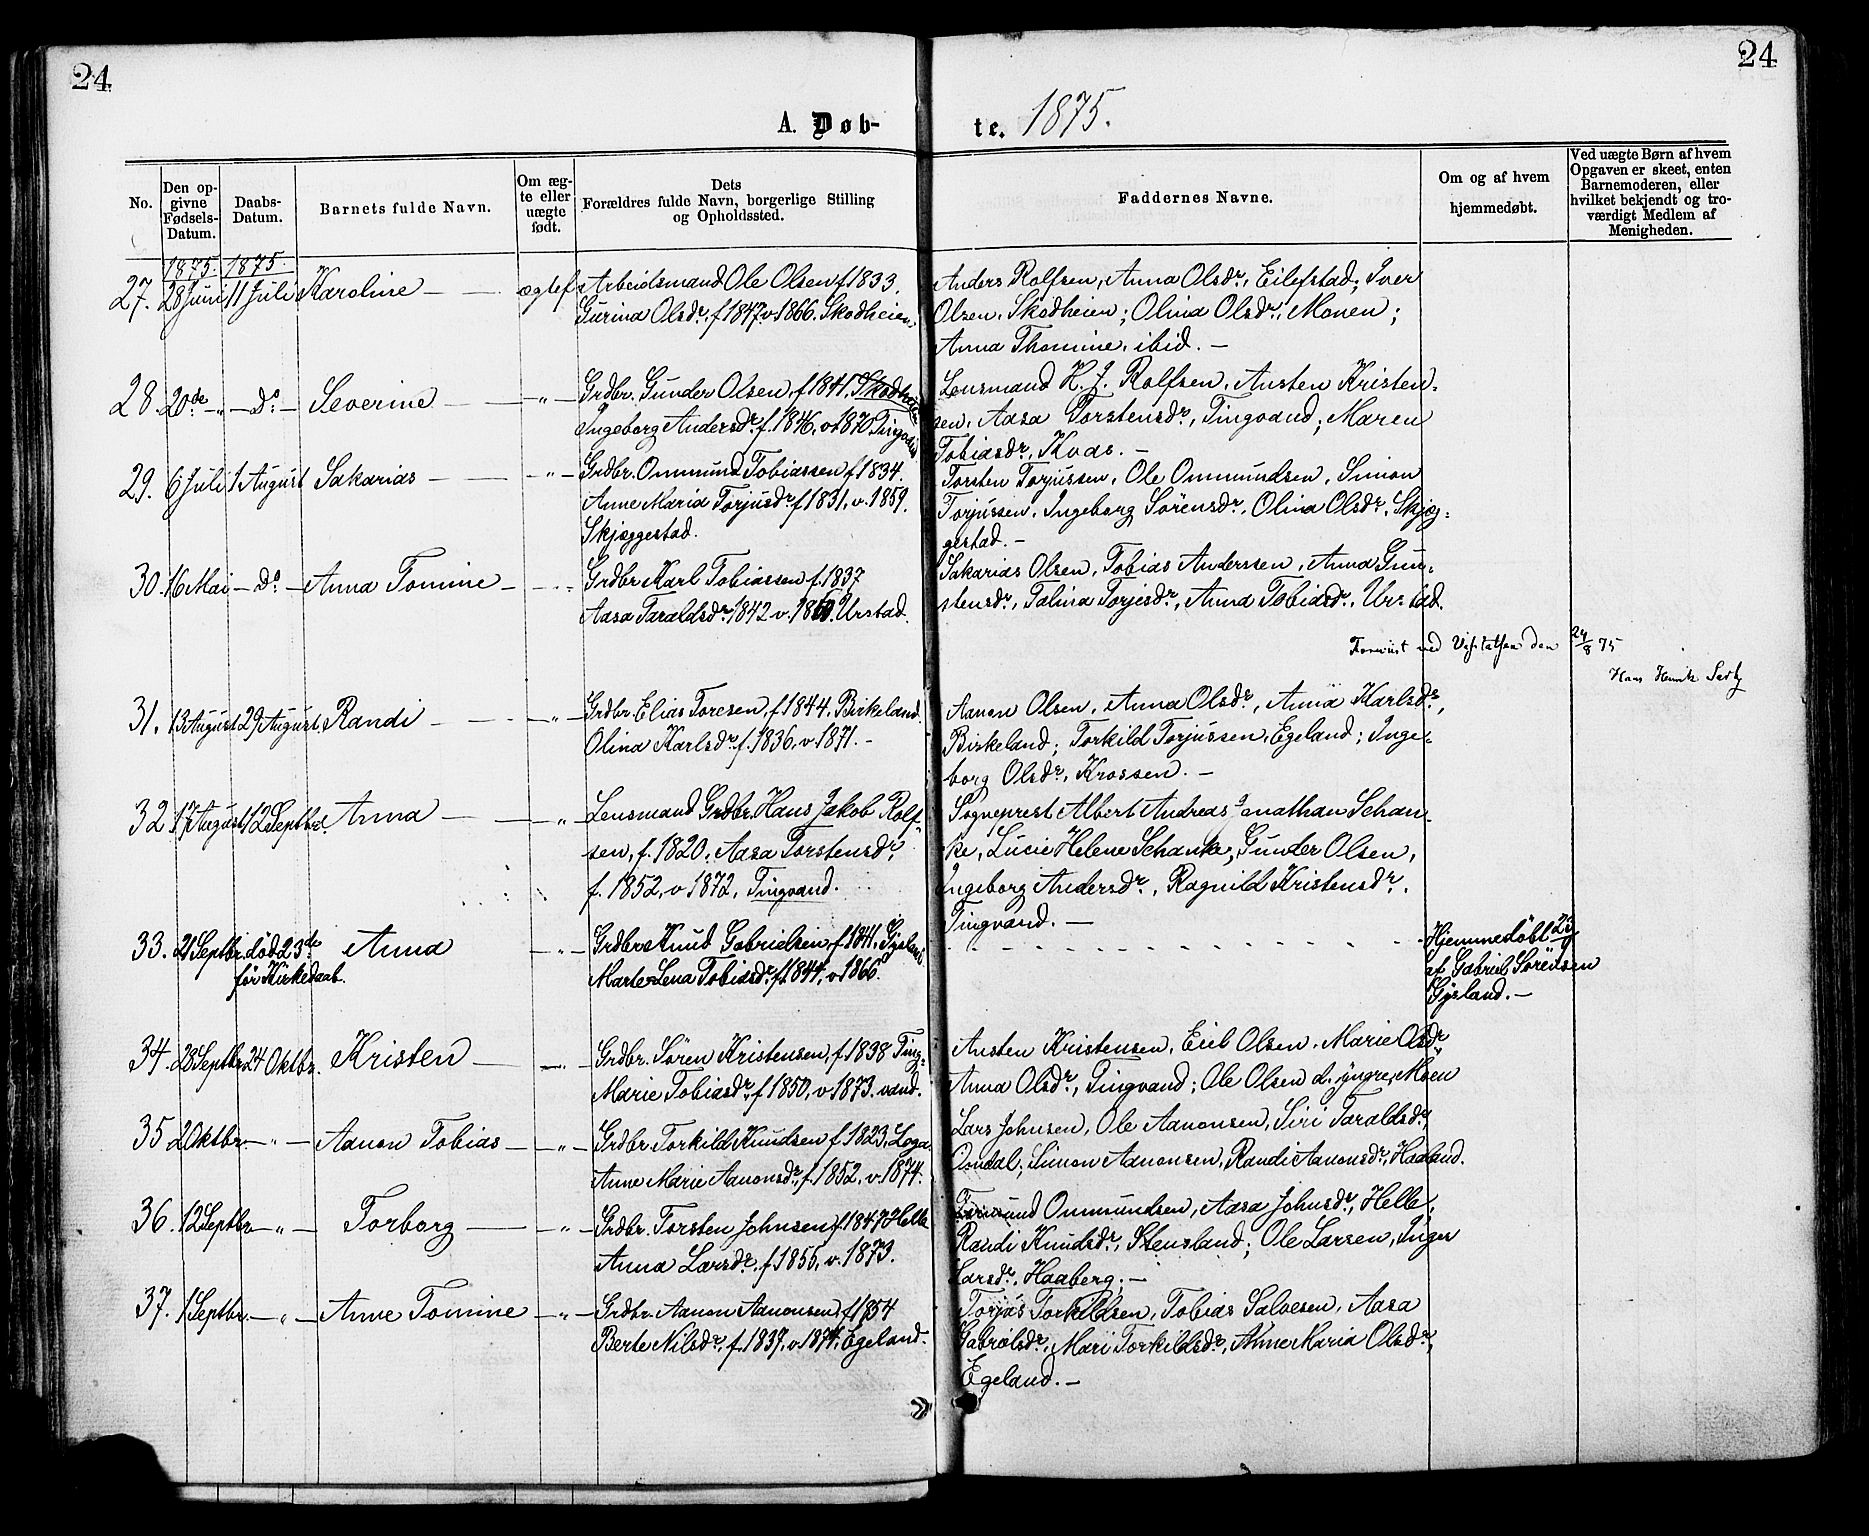 24
24
A. Døb-
te. 1875.
No.
Den op-
givne
Fødsels-
Datum.
Daabs-
Datum.
Barnets fulde Navn.
Om æg-
te eller
uægte
født.
Dets
Forældres fulde Navn, borgerlige Stilling
og Opholdssted.
Faddernes Navne.
Om og af hvem
hjemmedøbt.
Ved uægte Børn af hvem
Opgaven er skeet, enten
Barnemoderen, eller
hvilket bekjendt og tro-
værdigt Medlem af
Menigheden.
1875. 1875.
27. 28 Juni 11 Juli Karoline — ægtef. Arbeidsmand Ole Olsen f. 1833.
Gurina Olsdr. f. 1847. v. 1866. Skodheien
Anders Rolfsen, Anna Olsdr., Eilefstad; Iver
Olsen, Skodheien; Olina Olsdr., Monen;
Anna Thomine, ibid. —
28. 20de — " — Do. — Severine — " — Grdbr. Gunder Olsen, f. 1841, Skodheien
Ingeborg Andersdr. f. 1846, v. 1870 Tingvand
Lensmand H. J. Rolfsen, Austen Kristen-
sen, Aasa Torstensdr., Tingvand; Maren
Tobiasdr., Kvas. —
29. 6 Juli 1 August Sakarias — " — Grdbr. Ommund Tobiassen f. 1834.
Anne Maria Torjusdr. f. 1831, v. 1859.
Skjæggestad.
Torsten Torjussen, Ole Ommundsen, Simon
Torjussen, Ingeborg Sørensdr., Olina Olsdr., Skjæg-
gestad. —
30. 16 Mai — Do. — Anna Tomine — " — Grdbr. Karl Tobiassen f. 1837
Aasa Taraldsdr. 1842 v. 1860. Urstad.
Sakarias Olsen, Tobias Anderssen, Anna Gun-
stensdr., Talina Torjesdr., Anna Tobiasdr., Urstad.
Foreviist ved Visitatsen den 24/8 75
Hans Henrik
31. 13 August 29 August. Randi — " — Grdbr. Elias Toresen, f. 1844. Birkeland.
Olina Karlsdr. f. 1836, v. 1871. —
Aanon Olsen, Anna Olsdr., Anna Karlsdr.,
Birkeland; Torkild Torjussen, Egeland; Inge-
borg Olsdr., Krossen. —
32. 17 August 12 Septbr. Anna — " — Lensmand Grdbr. Hans Jakob Rolf-
sen, f. 1820, Aasa Torstensdr.
f. 1852, v. 1872, Tingvand.
Sogneprest Albert Andreas Jonathan Schan-
ke, Lucie Helene Schanke, Gunder Olsen,
Ingeborg Andersdr., Ragnild Kristensdr.
Tingvand. —
33. 21 Septbr. død 23de Anna — " — Grdbr. Knud Gabrielsen, f. 1841, Gysland
før Kirkedaab.
Marte Lena Tobiasdr. f. 1844, v. 1866.
Hjemmedöbt 23/9
af Gabriel Sörensen
Gysland. —
34. 28 Septbr. 24 Oktbr. Kristen — " — Grdbr. Sören Kristensen, f. 1838 Ting-
Marie Tobiasdr., f. 1850, v. 1873. vand.
Austen Kristensen, Erik Olsen, Marie Olsdr.
Anna Olsdr., Tingvand; Ole Olsen d. yngre, Moen
35 2 Oktbr. — " — Aanon Tobias — " — Grdbr. Torkild Knudsen f. 1823, Loga
Anne Marie Aanonsdr., f. 1852, v. 1874.
Lars Johnsen, Ole Aanonsen, Siri Taraldsdr.,
Omdal; Simon Aanonsen, Randi Aanonsdr., Haaland.
36. 12 Septbr. — " — Torborg — " — Grdbr. Torsten Johnsen, f. 1847 Helle
Anna Larsdr., f. 1855, v. 1873.
Ommundsen, Aasa Johnsdr., Helle,
Randi Knudsdr., Stensland; Ole Larsen, Inger
Larsdr., Haaberg. —
37. 1 Septbr. — " — Anne Tomine — " — Grdbr. Aanon Aanonsen, f. 1854
Berte Nilsdr., f. 1837, v. 1874, Egeland.
Torjus Torkildsen, Tobias Salvesen, Aasa
Gabrielsdr., Mari Torkildsdr., Anne Maria Olsdr.,
Egeland. —